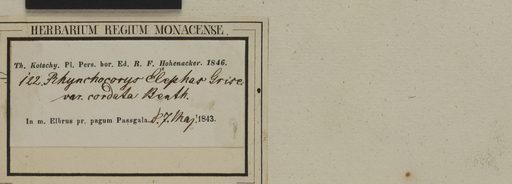 HERBARIUM REGIUM MONACENSE.
Th. Kotschy. Pl. Pers. bor. Ed. R. F. Hohenacker. 1846.
122. Rhynchocorys Elephas Grise.
var. cordata Benth.
In m. Elbrus pr. pagum Passgala. d. 7. Maj. 1843.